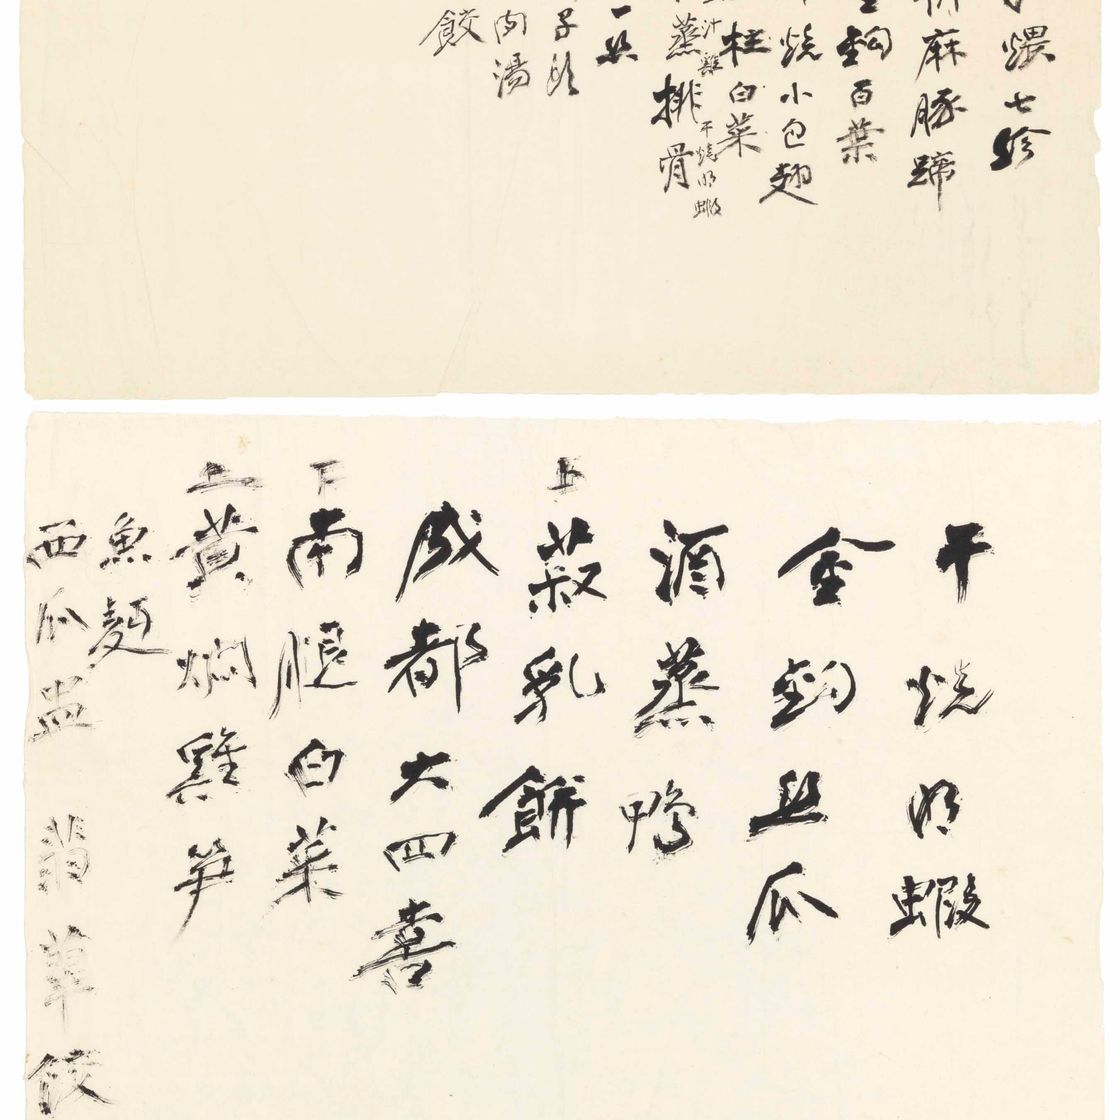 煨七珍
麻豚蹄
鈎百葉
燒小包翅
柱白菜
汁雞
干燒明蝦
蒸排骨
一
子
肉湯
餃
干燒明蝦
金鈎絲瓜
酒蒸鴨
上菽乳餅
成都大四喜
下南腿白菜
上黃燜雞笋
魚麵
西瓜盅 翡翠餃